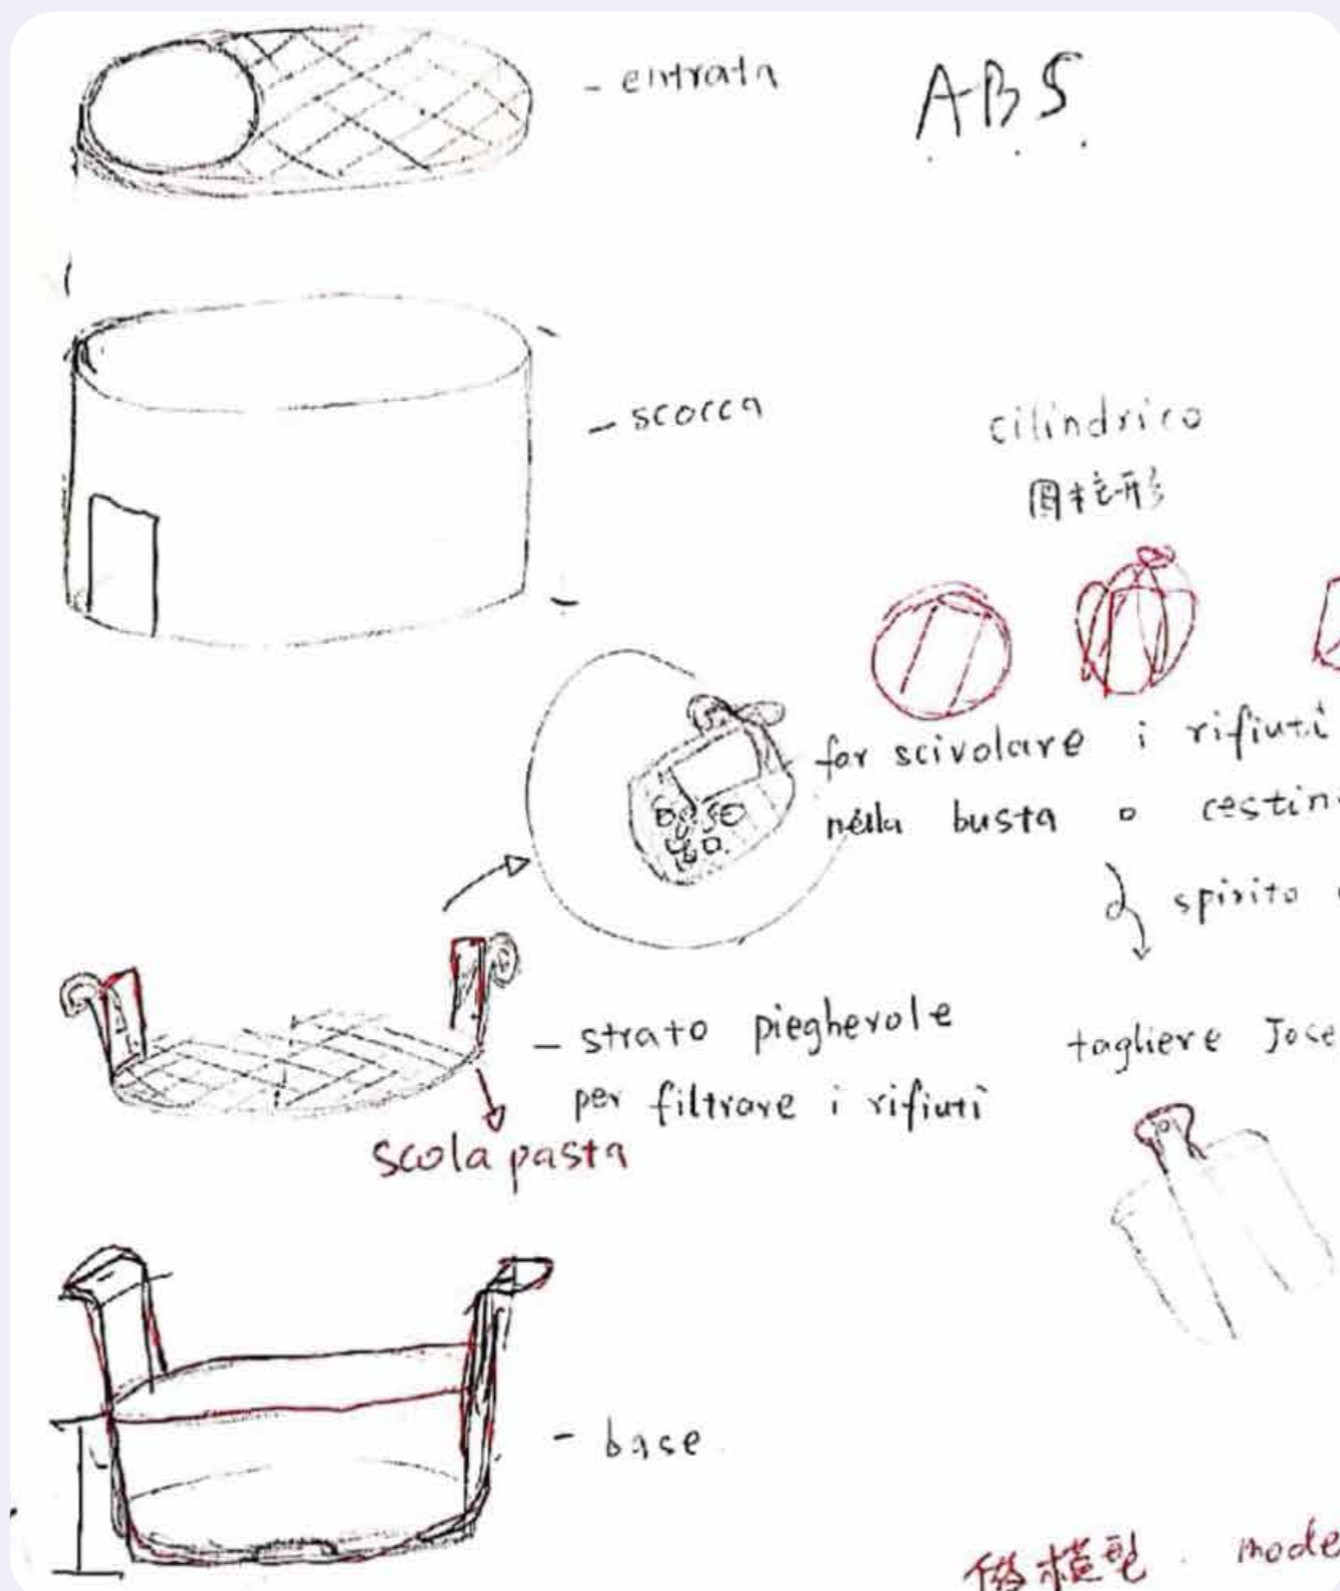 - entrata
ABS
- scocca
cilindrico
圆柱形
far scivolare i rifiuti
nella busta o cestin
spirito
tagliere Jose
- strato piegherole
per filtrare i rifiuti
scola pasta
- base
做模型. mode